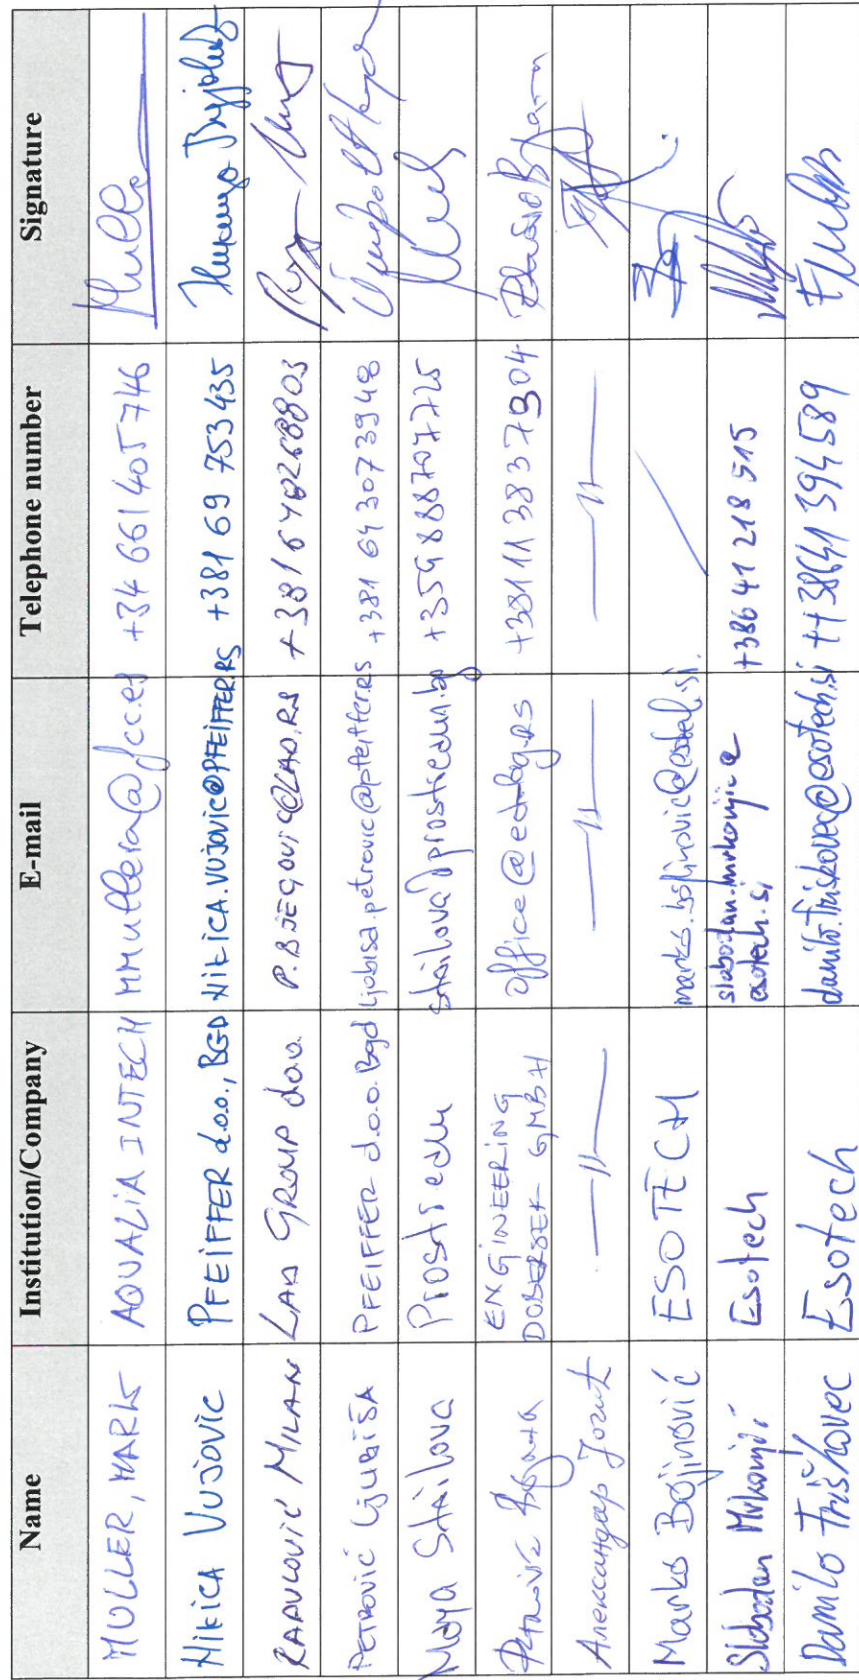 Name Institution/Company E-mail Telephone number Signature
MULLER, MARK AQUALIA INTECH mmullera@fcc.es +34 661 405 746
NIKICA VUJOVIC PFEIFFER d.o.o., BGD NIKICA.VUJOVIC@PFEIFFER.RS +381 69 753 435
RADULOVIĆ MILAN LAD GROUP d.o.o. P.BJEGOVIC@LAD.RS
PETROVIĆ LJUBIŠA PFEIFFER d.o.o. Bgd ljubisa.petrovic@pfeiffer.rs +381 64 307 3948
Maya Stailova Prostredu +359 888 707 725
ENGINEERING
DOBERSEK GMBH office@ed-bg.rs +381 11 3837 904
Александар —〃— —〃— —〃—
Marko Bojinović ESOTECH /
Slobodan Esotech slobodan.mrkonjic@
esotech.si +386 41 218 515
Danilo Triškovec Esotech danilo.triskovec@esotech.si ++38641 394589